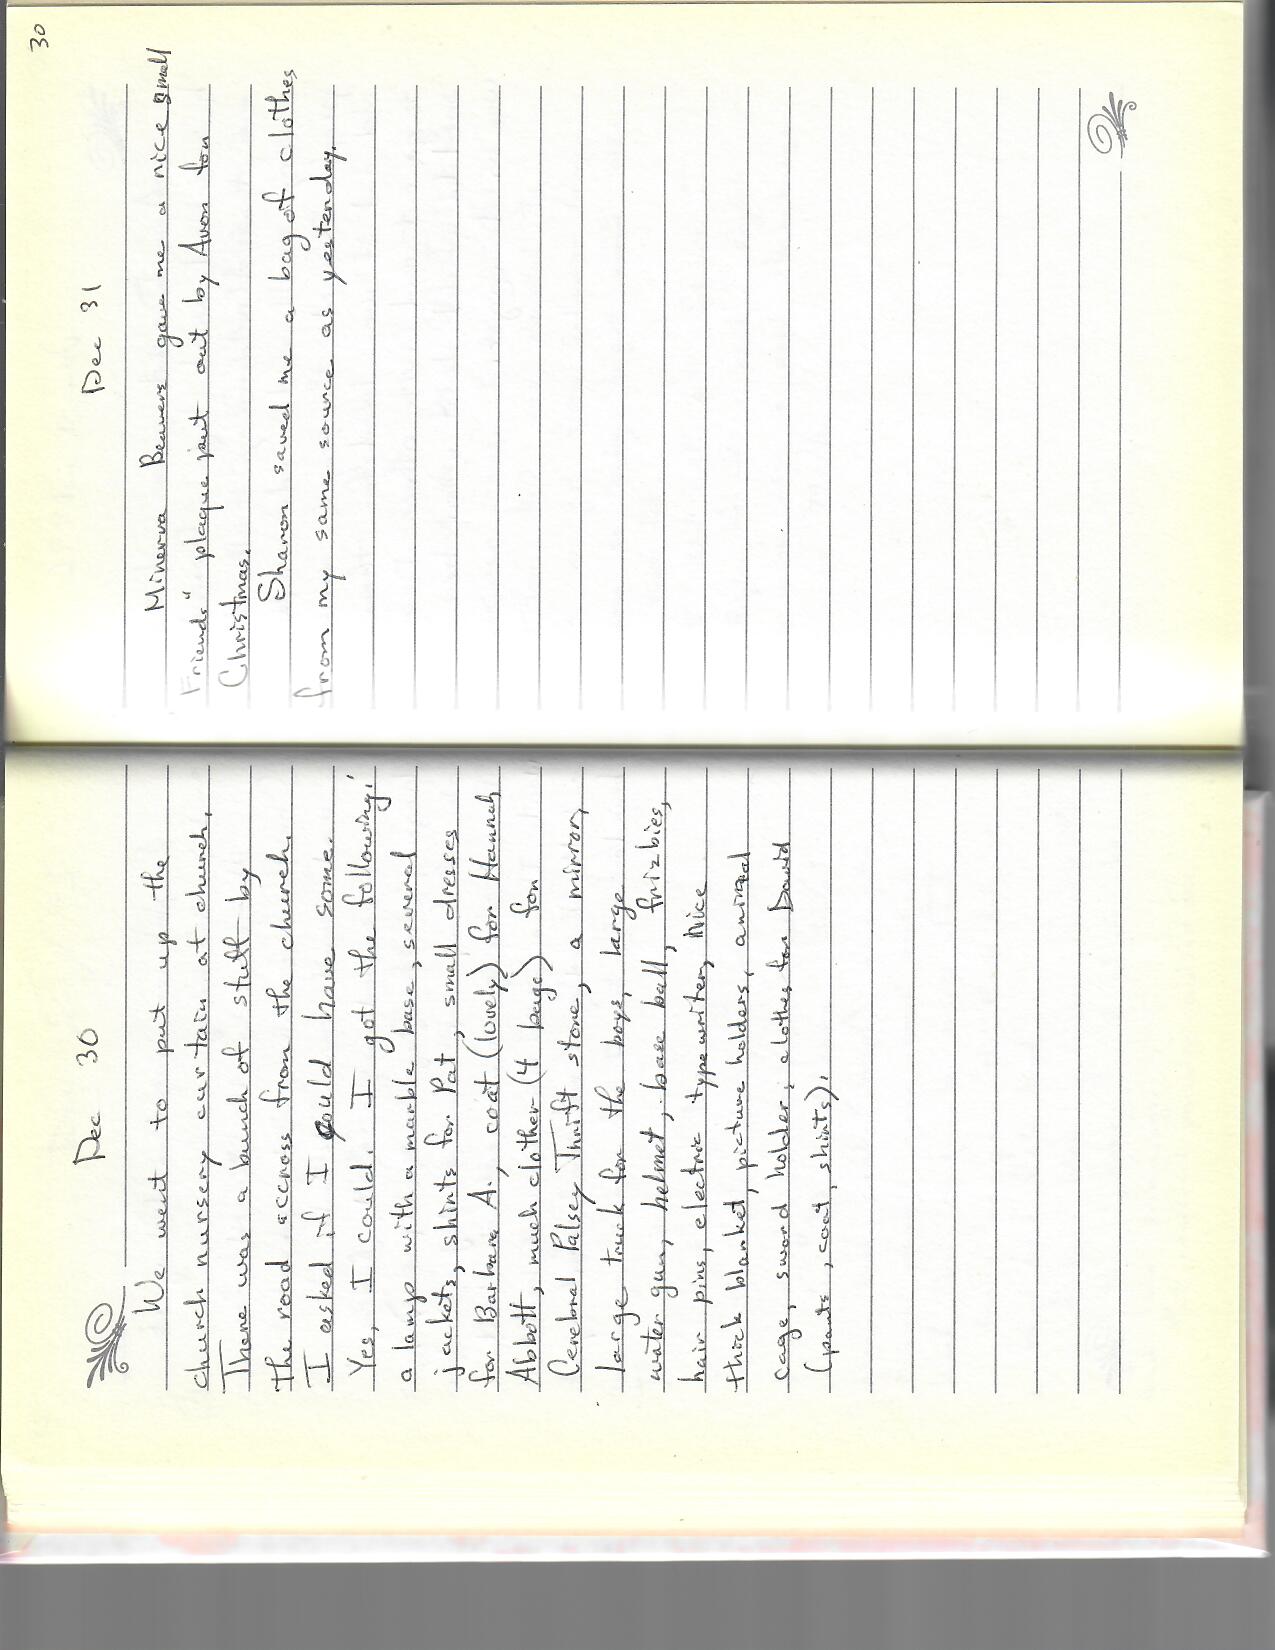 Dec 30
We went to put up the
church nursery curtain at church.
There was a bunch of stuff by
the road accross from the church.
I asked if I could have some.
Yes, I could. I got the following:
a lamp with a marble base, several
jackets, shirts for Pat, small dresses
for Barbara A., coat (lovely) for Hannah
Abbott, much clother (4 bags) for
Cerebral Palsey Thrift store, a mirror,
large truck for the boys, large
water gun, helmet, base ball, frizbies,
hair pins, electric typewriter, nice
thick blanket, picture holders, animal
cage, sword holder, clothes for David
(pants, coat, shirts).
30
Dec 31
Minerva Beavers gave me a nice small
Friends" plaque put out by Avon for
Christmas.
Sharon saved me a bag of clothes
from my same source as yesterday.